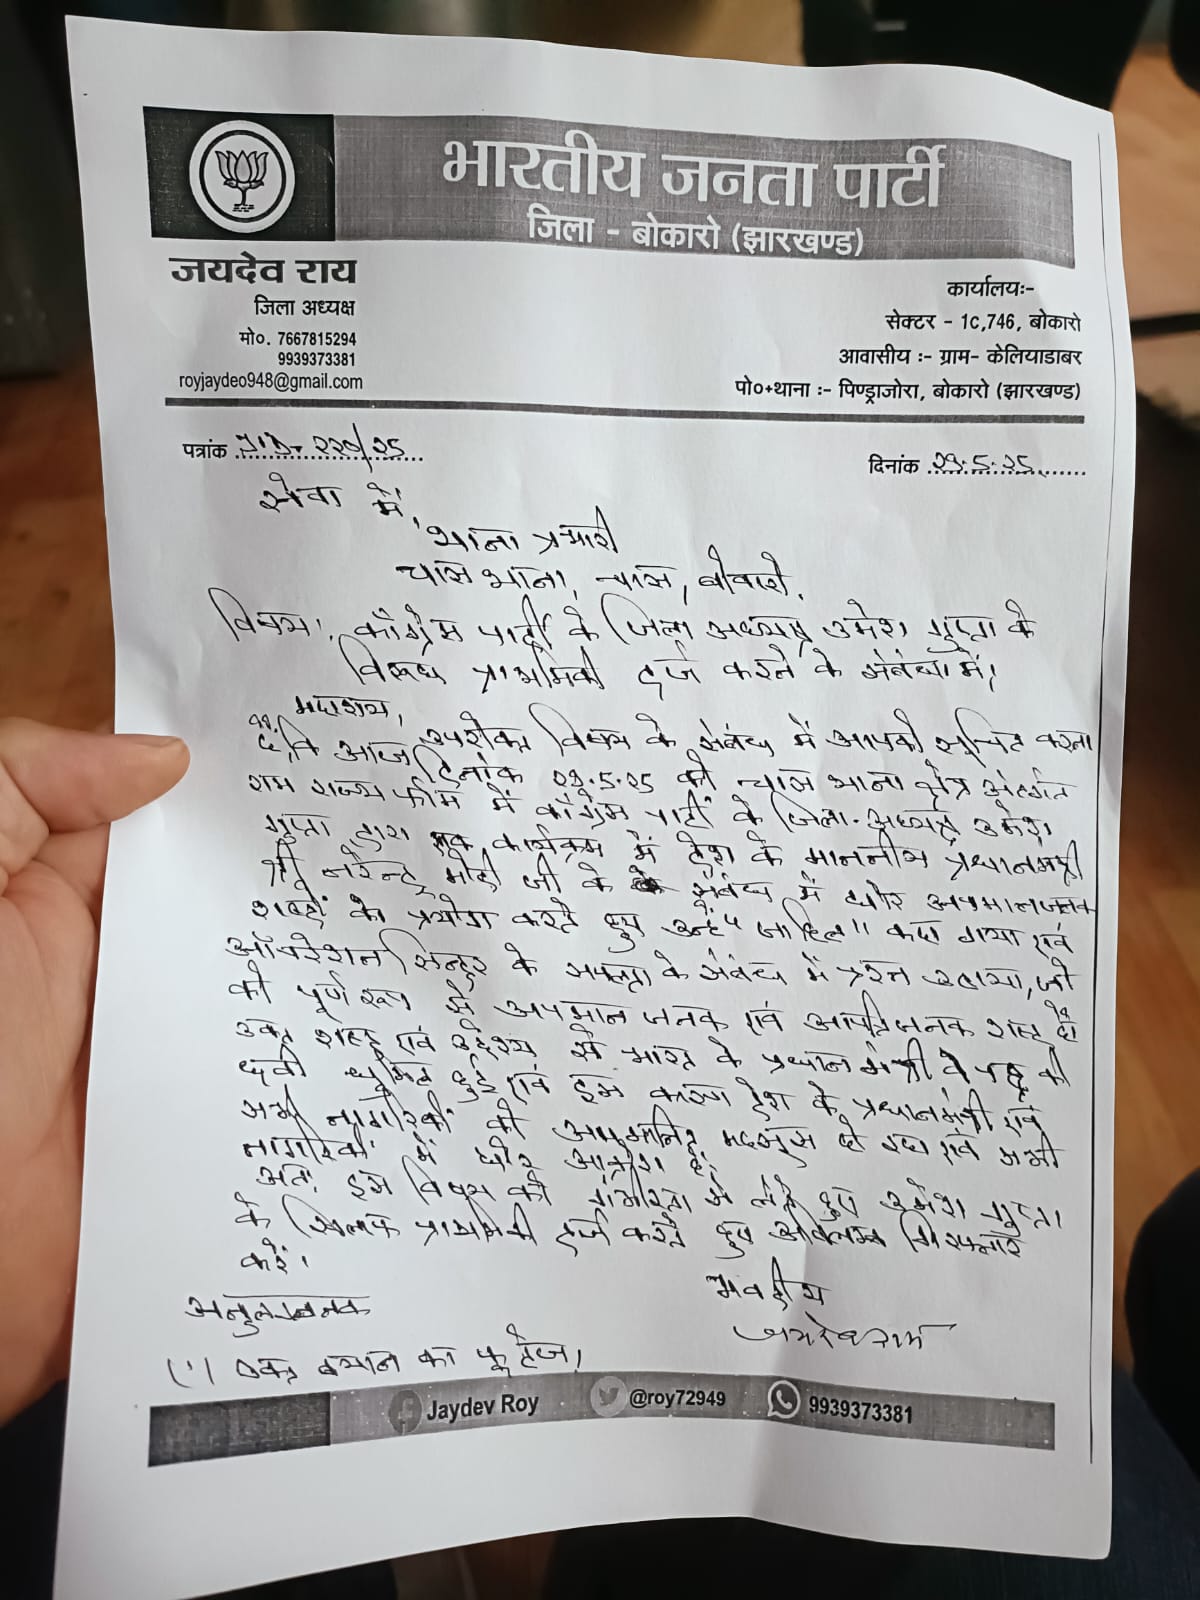 भारतीय जनता पार्टी
जिला - बोकारो (झारखण्ड)
जयदेव राय
जिला अध्यक्ष
मो०. 7667815294
9939373381
royjaydeo948@gmail.com
कार्यालयः-
सेक्टर - 1c,746, बोकारो
आवासीय :- ग्राम- केलियाडाबर
पो०+थाना :- पिण्ड्राजोरा, बोकारो (झारखण्ड)
पत्रांक
दिनांक २९.5.२5
सेवा में,
थाना प्रभारी
चास थाना, चास, बोकारो.
विषय:. काँग्रेस पार्टी के जिला अध्यक्ष उमेश गुप्ता के
विरूद्ध प्राथमिकी दर्ज करने के संबंध में।
महाशय,
उपरोक्त विषय के संबंध में आपको सूचित करना
है कि आज दिनांक २९.5.२5 को चास थाना क्षेत्र अंतर्गत
राम राज्य में काँग्रेस पार्टी के जिला-अध्यक्ष उमेश
गुप्ता द्वारा एक कार्यक्रम में देश के माननीय प्रधानमंत्री
श्री नरेन्द्र मोदी जी के संबंध में घोर अपमानजनक
शब्दों का प्रयोग करते हुए उन्हें "जाहिल" कहा गया एवं
ऑपरेशन सिन्दुर के सफलता के संबंध में प्रश्न उठाया, जो
की पूर्ण रूप से अपमान जनक एवं आपत्तिजनक शब्द है।
उक्त शब्द एवं उद्देश्य से भारत के प्रधान मंत्री के पद की
छवी धूमिल हुई एवं इस कारण देश के प्रधानमंत्री एवं
सभी नागरिकों को अपमानित महसूस हो रहा एवं सभी
नागरिकों में घोर आक्रोश है.
अतः इस विषय को गंभीरता से लेते हुए उमेश गुप्ता
के खिलाफ प्राथमिकी दर्ज करते हुए अविलम्ब गिरफ्तार
करें.
भवदीय
अनुलग्नक
(1) उक्त बयान का फूटेज।
Jaydev Roy @roy72949 9939373381